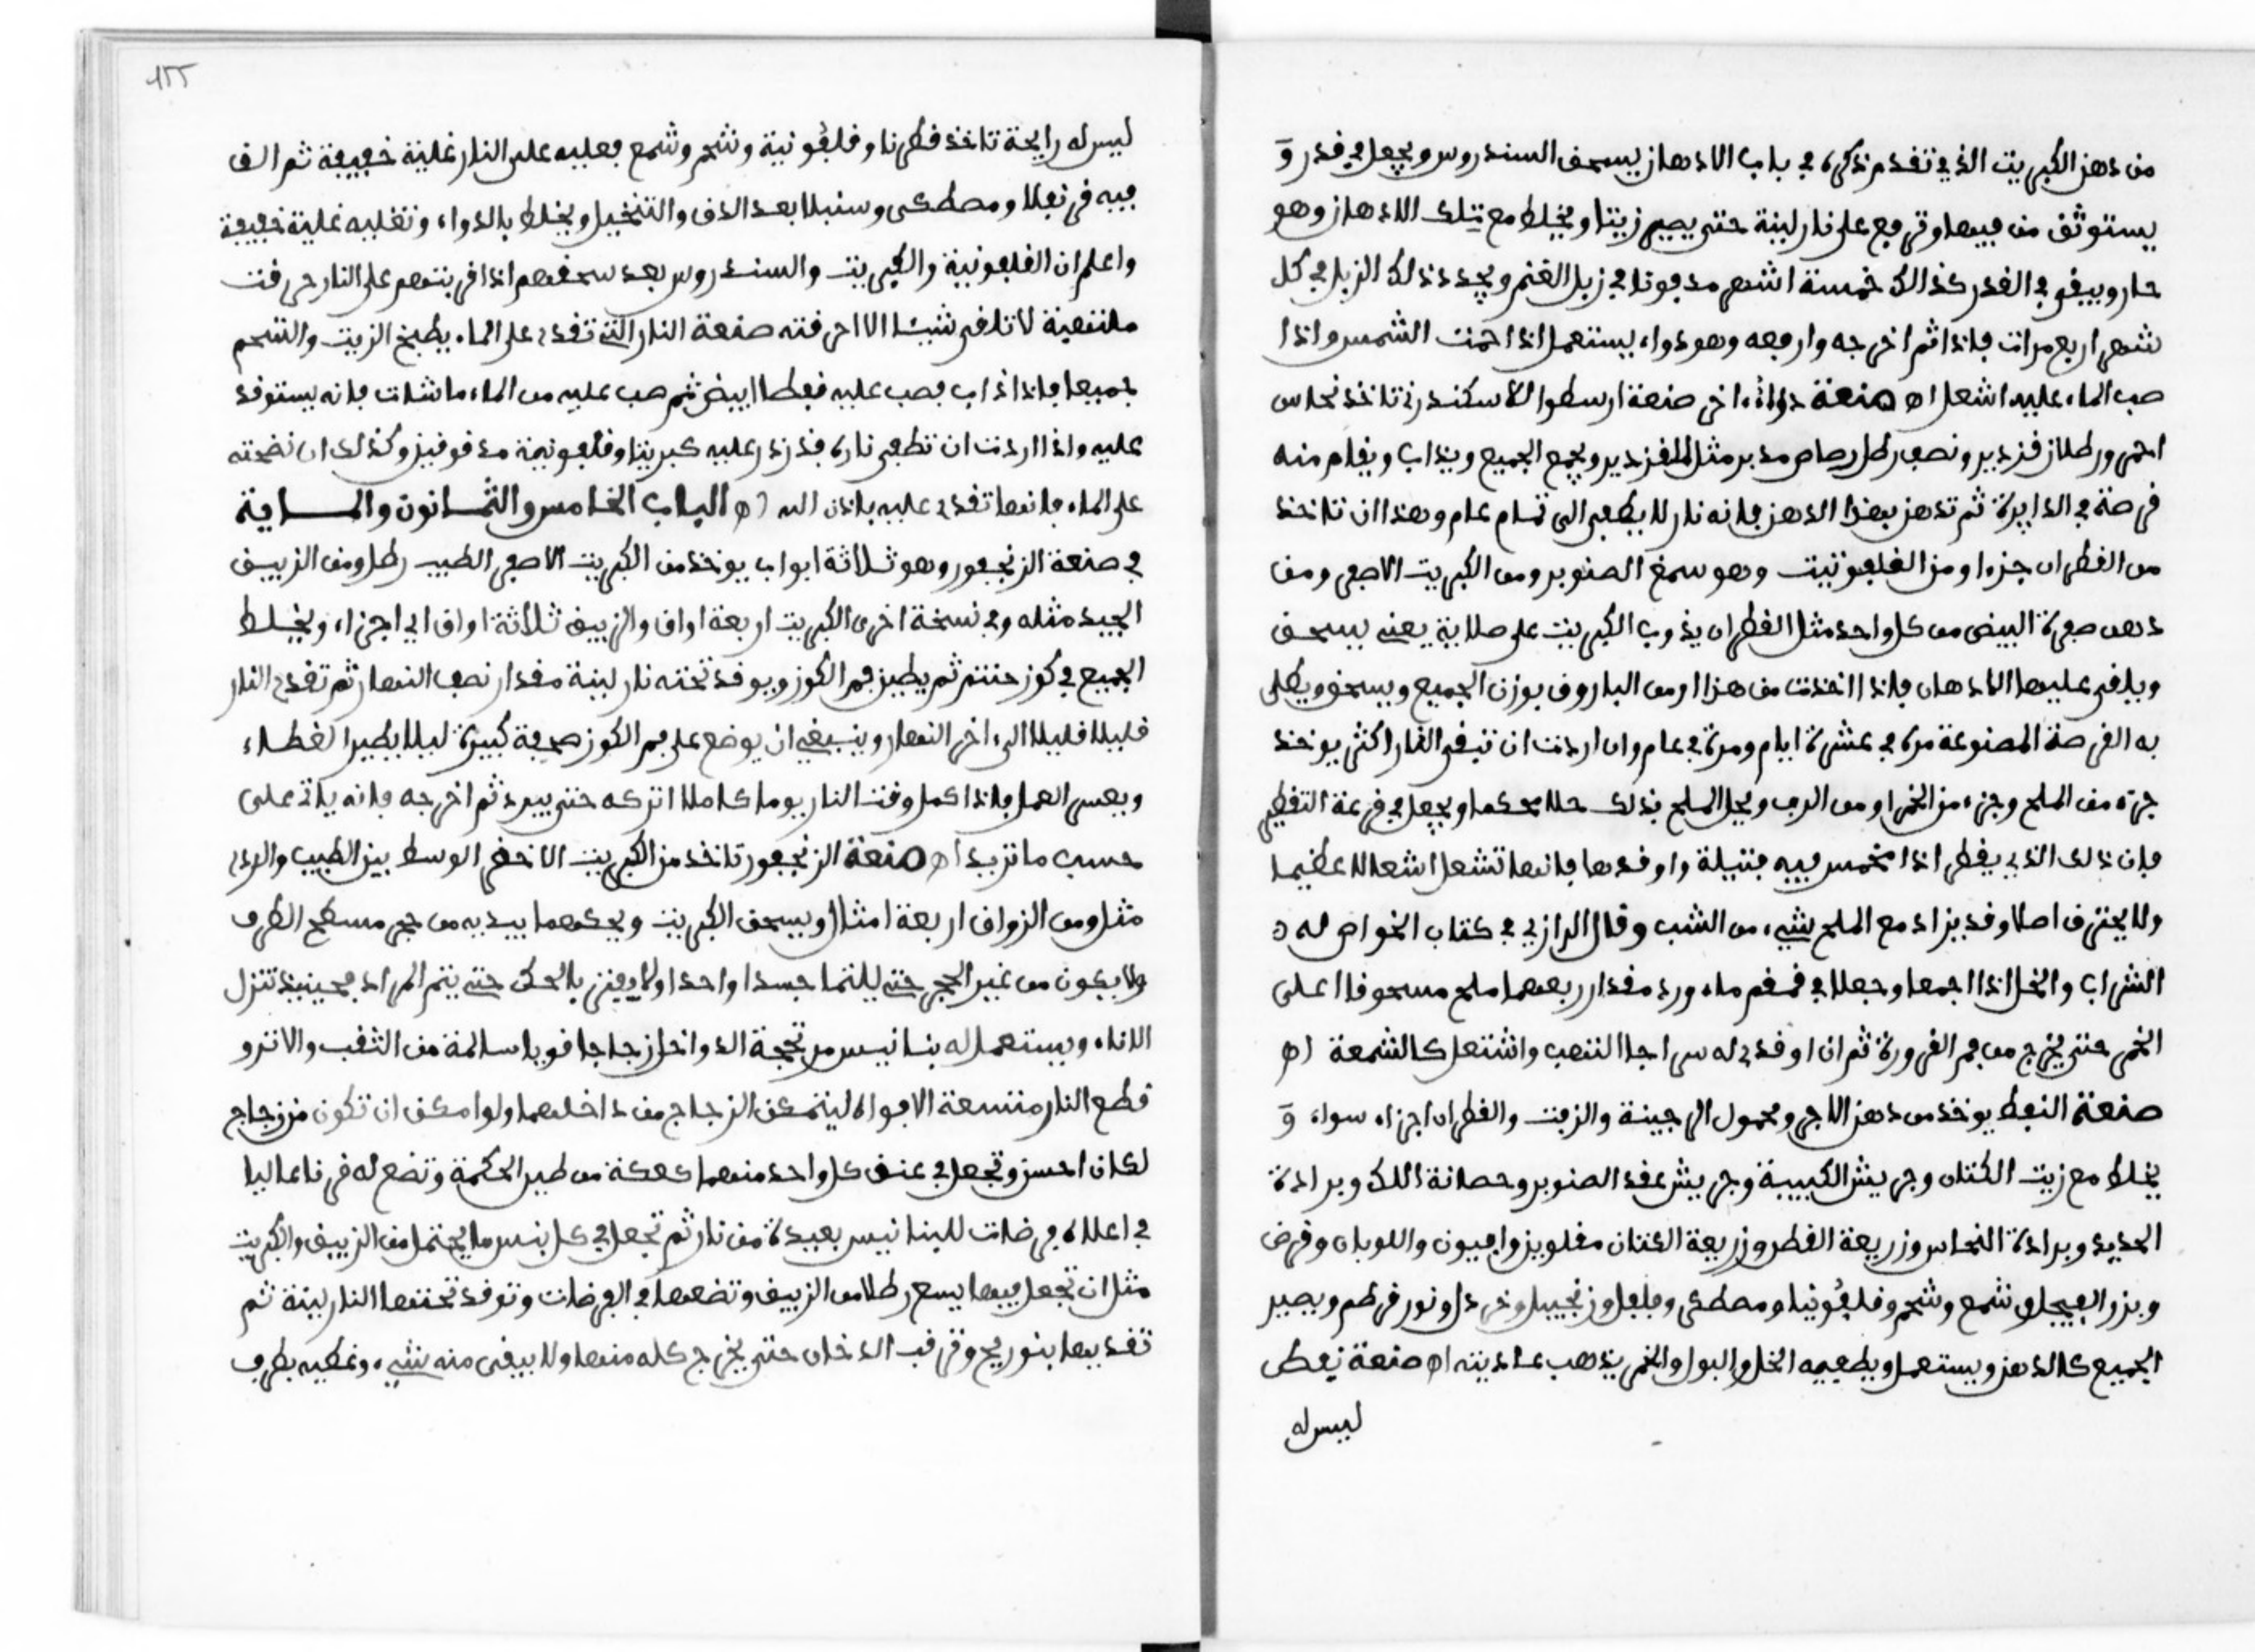 من دهن الكبريت الذي تقدم ذكره في باب الادهان يسحق السندروس ويجعل في قدر و
يستوثق من فيها وترفع على نار لينة حتى يصير زيتا ويخلط مع تلك الادهان وهو
حار ويبقى في القدر كذالك خمسة اشهر مدفونا في زبل الغنم ويجدد ذلك الزبل في كل
شهر اربع مرات فاذا ثم اخرجه وارفعه وهو دواء يستعمل اذا حمت الشمس واذا
صب الماء عليه اشعل اه صنعة دواء اخر صنعة ارسطوا للاسكندر تاخذ نحاس
احمر ورطلان قزدير ونصف رطل رصاص مدبر مثل القزدير ويجمع الجميع ويذاب ويقام منه
قرصة في الدايرة ثم تدهن بهذا الدهن فانه نار لا يطفى الى تمام عام وهذا ان تاخذ
من القطران جزءا ومن القلفونيت وهو سمغ الصنوبر ومن الكبريت الاصفر ومن
دهن صفرة البيض من كل واحد مثل القطران يذوب الكبريت على صلاية يعني يسحق
ويلقى عليها الادهان فاذا اخذت من هزا ومن الباروق بوزن الجميع ويسحق ويطلى
به القرصة المصنوعة مرة في عشرة ايام ومرة في عام وان اردت ان تبقى النار اكثر يوخذ
جزء من الملح وجزء من الخمر او من الرب ويحل الملح بذلك حلا محكما ويجعل في قرعة التقطير
فان ذلك الذي يقطر اذا غمس فيه فتيلة واوقدها فانها تشعل اشعالا عظيما
ولا يحترق اصلا وقد يزاد مع الملح شيء من الشب وقال الرازي في كتاب الخواص له
الشراب والخل اذا اجمعا وجعلا في قمقم ماء ورد مقدار ربعهما ملح مسحوقا اعلى
الخمر حتى يخرج من فم القرورة ثم ان اوقد له سراجا التهب واشتعل كالشمعة اه
صنعة النفط يوخذ من دهن الاجر ومحمول الرجينة والزيت والقطران اجزاء سواء و
يخلط مع زيت الكتان وجريش الكبيبة وجريش عقد الصنوبر وحصانة اللك وبرادة
الحديد وبرادة النحاس وزريعة القطن وزريعة الكتان مقلويز وافيون واللوبان وقرض
وبزر الفيجل وشمع وشحم وقلفونيا ومصطكى وفلفل وزنجبيل وخردل ونور قرطم ويصير
الجميع كالدهن ويستعمل ويطفيه الخل والبول والخمر يذهب عاديته اه صنعة نفط
ليس له
١٥٥
ليس له رايحة تاخذ قطرنا وقلفونية وشحم وشمع فعليه على النار غلية خفيفة ثم الق
فيه قرنفلا ومصطكى وسنبلا بعد الدق والتنخيل ويخلط بالدواء وتغليه غلية خفيفة
واعلم ان القلفونية والكبريت والسندروس بعد سحقهم اذا قربتهم على النار حرقت
ملتهبة لا تلقى شيئا الا احرقته صنعة النار التي تقد على الماء يطبخ الزيت والشحم
جميعا فاذا ذاب فصب عليه نفطا ابيض ثم صب عليه من الماء ما شات فانه يستوقد
عليه واذا اردت ان تطفي ناره فذر عليه كبريتا وقلفونية مدقوقيز وكذلك ان نضحته
على الماء فانها تقد عليه باذن الله اه الباب الخامس والثمانون والماية
في صنعة الزنجفور وهو ثلاثة ابواب يوخذ من الكبريت الاصفر الطيب رطل ومن الزييق
الجيد مثله وفي نسخة اخرى الكبريت اربعة اواق والزييق ثلاثة اواق اي اجزاء ويخلط
الجميع في كوز حنتم ثم يطين فم الكوز ويوقد تحته نار لينة مقدار نصف النهار ثم تقد النار
قليلا قليلا الى اخر النهار وينبغي ان يوضع على فم الكوز صحفة كبيرة ليلا يطير الغطاء
ويعس العمل فاذا كمل وقت النار يوما كاملا اتركه حتى يبرد ثم اخرجه فانه ياتي على
حسب ما تريد اه صنعة الزنجفور تاخذ من الكبريت الاخضر الوسط بين الطيب والردي
مثل ومن الزواق اربعة امثال ويسحق الكبريت ويحكهما بيديه من حجر مسطح الطرف
ولا يكون من غير الحجر حتى يلتما جسدا واحدا ولا يفتر بالحك حتى يتم المراد فحينيذ تنزل
الاناء ويستعمل له بنانيس مرتججة الدواخل زجاجا قويا سالمة من الثقب والاتزو
قطع النار متسعة الافواه ليتمكن الزجاج من داخلهما ولو امكن ان تكون من زجاج
لكان احسن وتجعل في عنق كل واحد منهما كعكة من طين الحكمة وتضع له فرنا عاليا
في اعلاه فرضات للبنانيس بعيدة من نار ثم تجعل في كل بنس ما يحتمل من الزييق والكبريت
مثل ان تجعل فيها يسع رطلا من الزييق وتضعها في الفرضات وتوقد تحتها النار لينة ثم
تقد بيها بنور يح وترقب الدخان حتى يخرج كله منها ولا يبقى منه شيء وغطيه بطرف